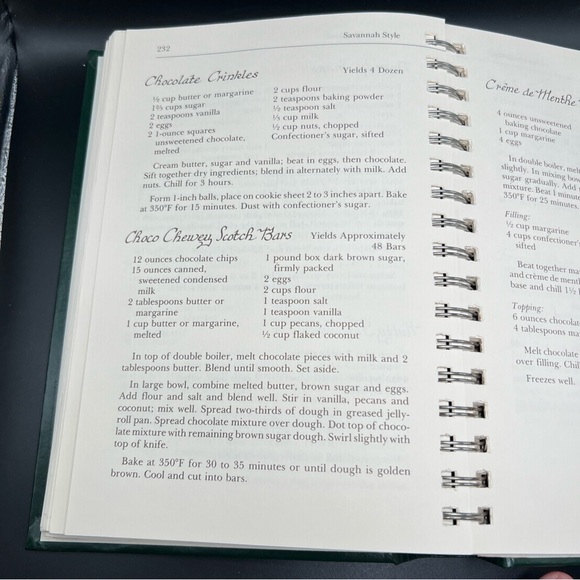 Savannah Style
232
Chocolate Crinkles
Yields 4 Dozen
½ cup butter or margarine
1⅔ cups sugar
2 teaspoons vanilla
2 eggs
2 1-ounce squares
unsweetened chocolate,
melted
2 cups flour
2 teaspoons baking powder
½ teaspoon salt
⅓ cup milk
½ cup nuts, chopped
Confectioner's sugar, sifted
Cream butter, sugar and vanilla; beat in eggs, then chocolate.
Sift together dry ingredients; blend in alternately with milk. Add
nuts. Chill for 3 hours.
Form 1-inch balls, place on cookie sheet 2 to 3 inches apart. Bake
at 350°F for 15 minutes. Dust with confectioner's sugar.
Choco Chewey Scotch Bars
Yields Approximately
48 Bars
12 ounces chocolate chips
15 ounces canned,
sweetened condensed
milk
2 tablespoons butter or
margarine
1 cup butter or margarine,
melted
1 pound box dark brown sugar,
firmly packed
2 eggs
2 cups flour
1 teaspoon salt
1 teaspoon vanilla
1 cup pecans, chopped
½ cup flaked coconut
In top of double boiler, melt chocolate pieces with milk and 2
tablespoons butter. Blend until smooth. Set aside.
In large bowl, combine melted butter, brown sugar and eggs.
Add flour and salt and blend well. Stir in vanilla, pecans and
coconut; mix well. Spread two-thirds of dough in greased jelly-
roll pan. Spread chocolate mixture over dough. Dot top of choco-
late mixture with remaining brown sugar dough. Swirl slightly with
top of knife.
Bake at 350°F for 30 to 35 minutes or until dough is golden
brown. Cool and cut into bars.
Crème de Menthe
4 ounces unsweetened
baking chocolate
1 cup margarine
4 eggs
In double boiler, mel
slightly. In mixing bow
sugar gradually. Add
mixture. Beat 1 minute
350°F for 25 minutes.
Filling:
½ cup margarine
4 cups confectioner's
sifted
Beat together ma
and crème de menth
base and chill 1½
Topping:
6 ounces chocolat
4 tablespoons ma
Melt chocolate
over filling. Chil
Freezes well.